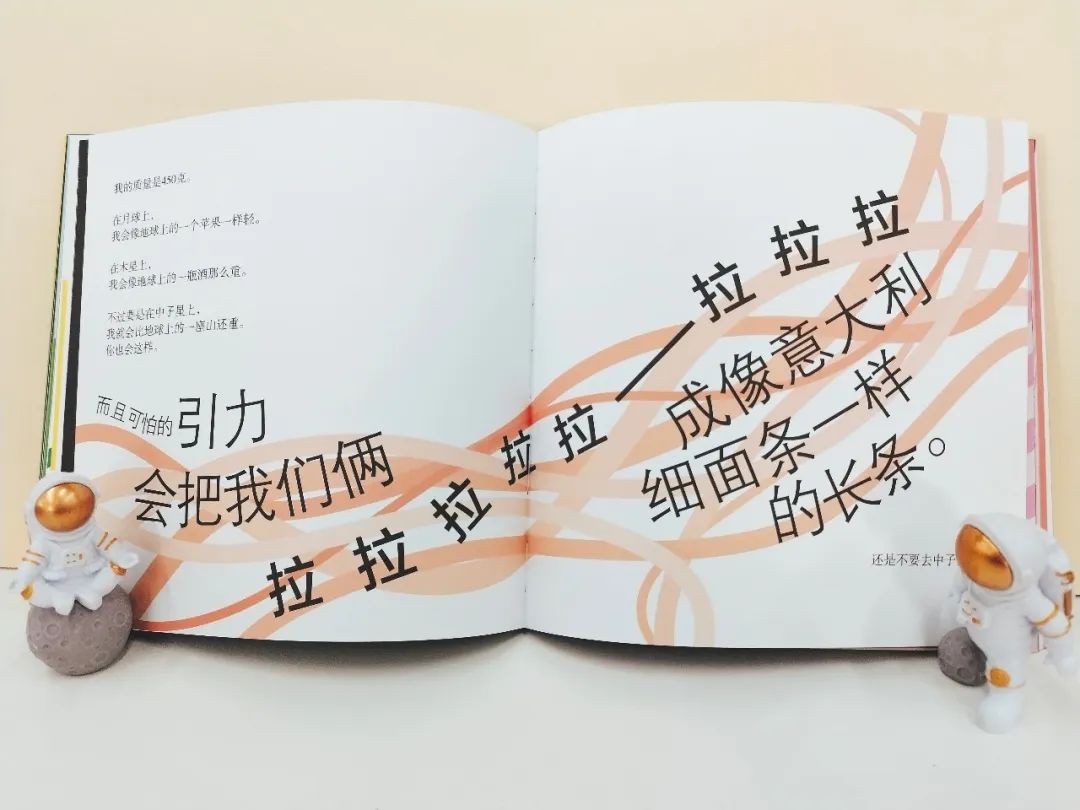 我的质量是450克。
在月球上,
我会像地球上的一个苹果一样轻。
在木星上,
我会像地球上的一瓶酒那么重。
不过要是在中子星上,
我就会比地球上的一座山还重。
你也会这样。
而且可怕的引力
会把我们俩
拉拉拉拉拉—拉拉拉
成像意大利
细面条一样
的长条。
还是不要去中子